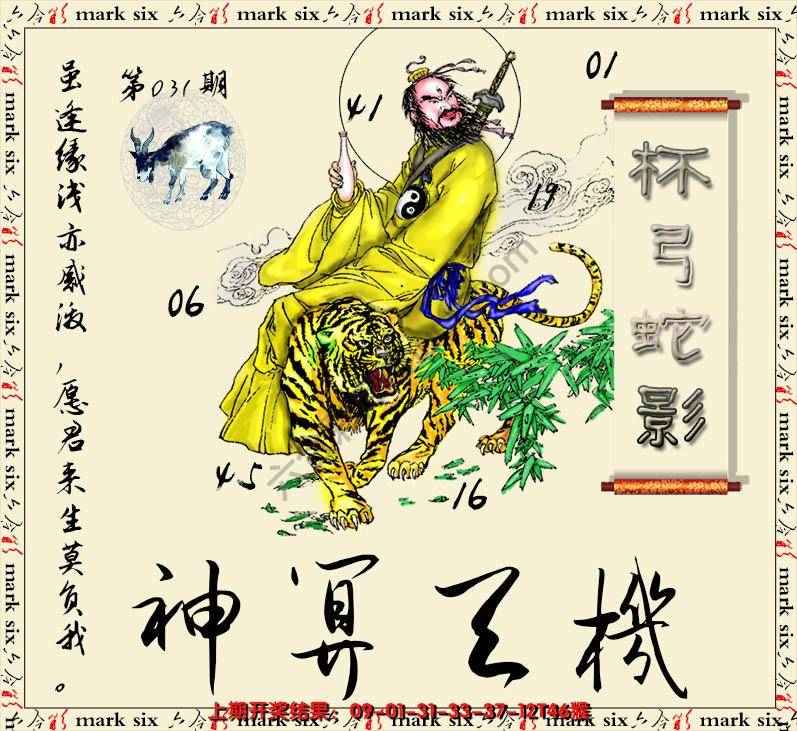 第031期
虽逢缘浅亦感激，愿君来生莫负我。
41
01
19
06
45
16
杯弓蛇影
神算天機
上期开奖结果：09-01-31-33-37-12T46猴
六合彩 mark six 六合彩 mark six 六合彩 mark six 六合彩 mark six 六合彩
mark six 六合彩 mark six 六合彩 mark six 六合彩 mark six